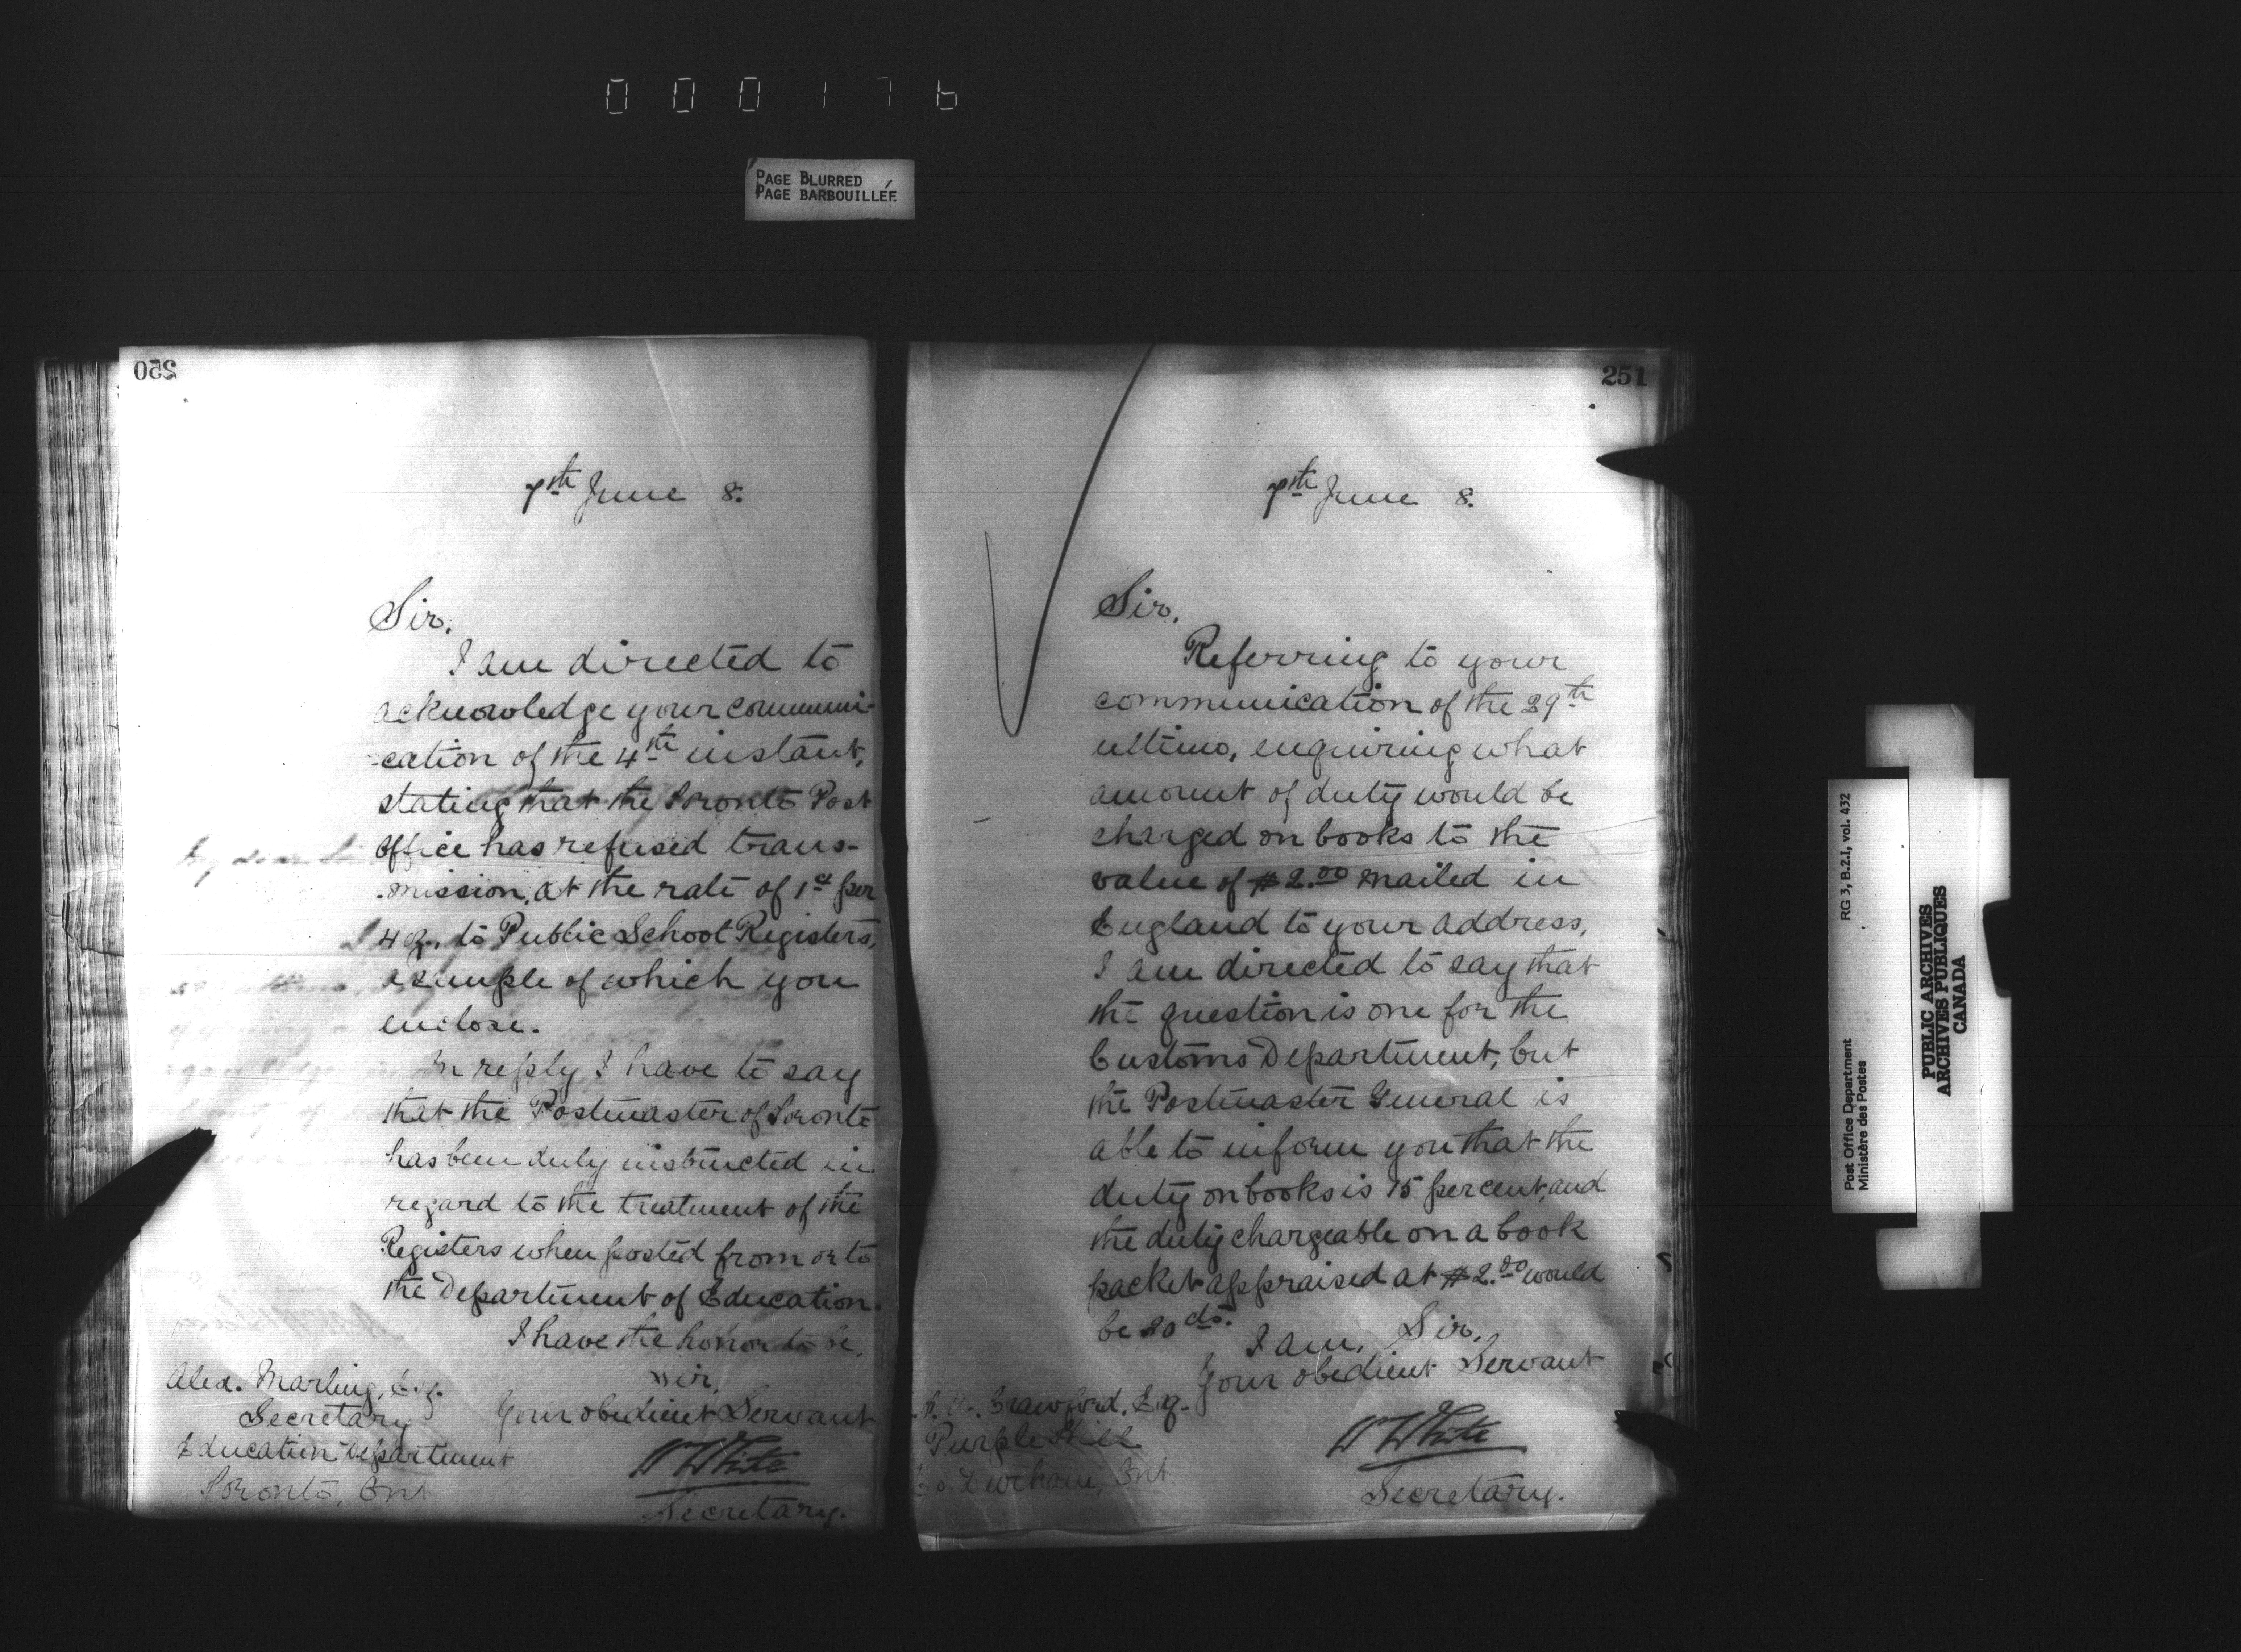 000176
PAGE BLURRED
PAGE BARBOUILLÉE
250
7th June 8.
Sir,
I am directed to
acknowledge your communi-
-cation of the 4th instant,
stating that the Toronto Post
Office has refused trans-
-mission, at the rate of 1ct per
4 oz., to Public School Registers,
a sample of which you
enclose.
In reply I have to say
that the Postmaster of Toronto
has been duly instructed in
regard to the treatment of the
Registers when posted from or to
the Department of Education.
I have the honor to be,
Sir,
Your obedient Servant
W White
Secretary.
Alex. Marling, Esq.
Secretary
Education Department
Toronto, Ont
251
7th June 8.
Sir,
Referring to your
communication of the 29th
ultimo, enquiring what
amount of duty would be
charged on books to the
value of $2.00 mailed in
England to your address,
I am directed to say that
the question is one for the
Customs Department, but
the Postmaster General is
able to inform you that the
duty on books is 15 per cent, and
the duty chargeable on a book
packet appraised at $2.00 would
be 30 cts.
I am, Sir,
Your obedient Servant
W White
Secretary.
Crawford, Esq.
Purple Hill
Co. Durham, Ont
RG 3, B.2.I, vol. 432
Post Office Department
Ministère des Postes
PUBLIC ARCHIVES
ARCHIVES PUBLIQUES
CANADA